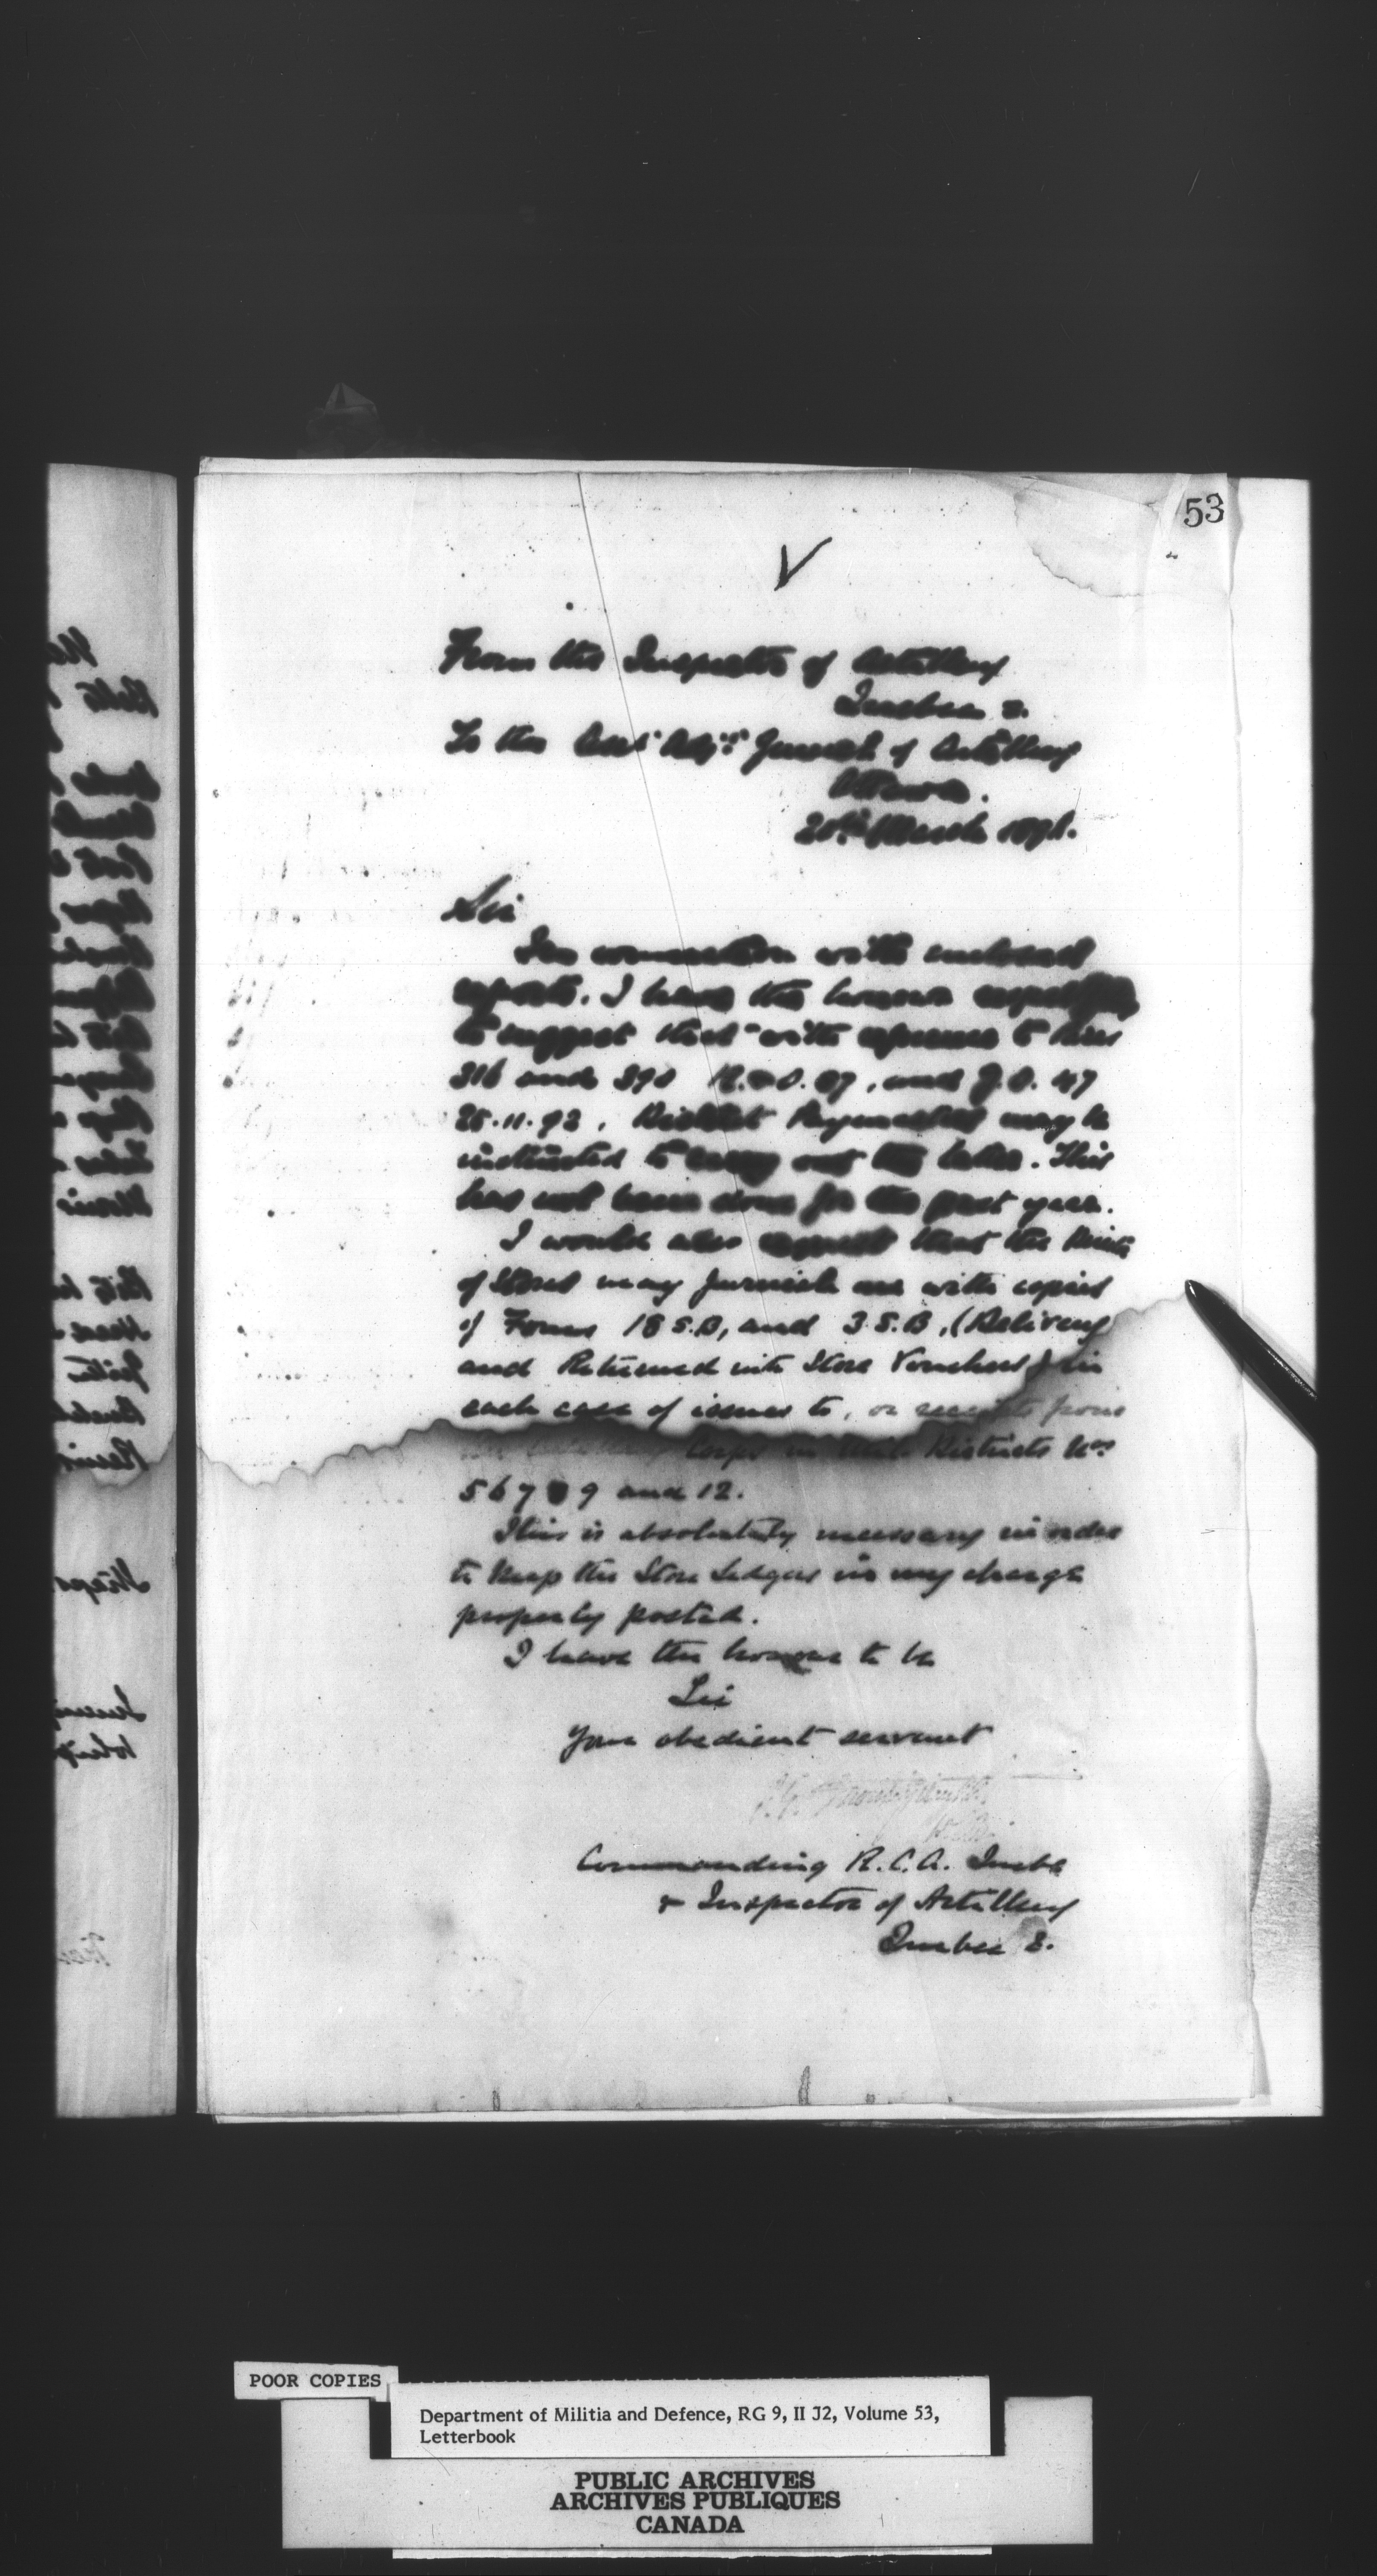 53
From the Inspector of Artillery
Quebec
To the Adjt General of Artillery
Ottawa.
20th March
Sir
In connection with enclosed
reports. I have the honour
to suggest that with reference to
316 and and G.O. 47
25.11.92. District may be
instructed to carry out the latter. This
has not been done for the past year.
I would also request that the
of Stores may furnish me with copies
of Forms 18 S.B, and 3 S.B, (Delivery
and Returned into Store Vouchers) in
each case of issues to, or receipts from
Corps in Districts Nos
5 6 7 9 and 12.
This is absolutely necessary in order
to keep the Store Ledgers in my charge
properly posted.
I have the honour to be
Sir
Your obedient servant
Commanding R.C.A. Quebec
& Inspector of Artillery
Quebec
POOR COPIES
Department of Militia and Defence, RG 9, II J2, Volume 53,
Letterbook
PUBLIC ARCHIVES
ARCHIVES PUBLIQUES
CANADA